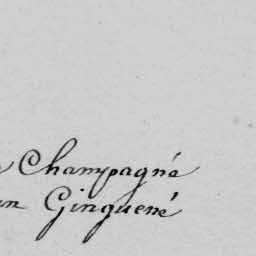 Champagné
Ginguené